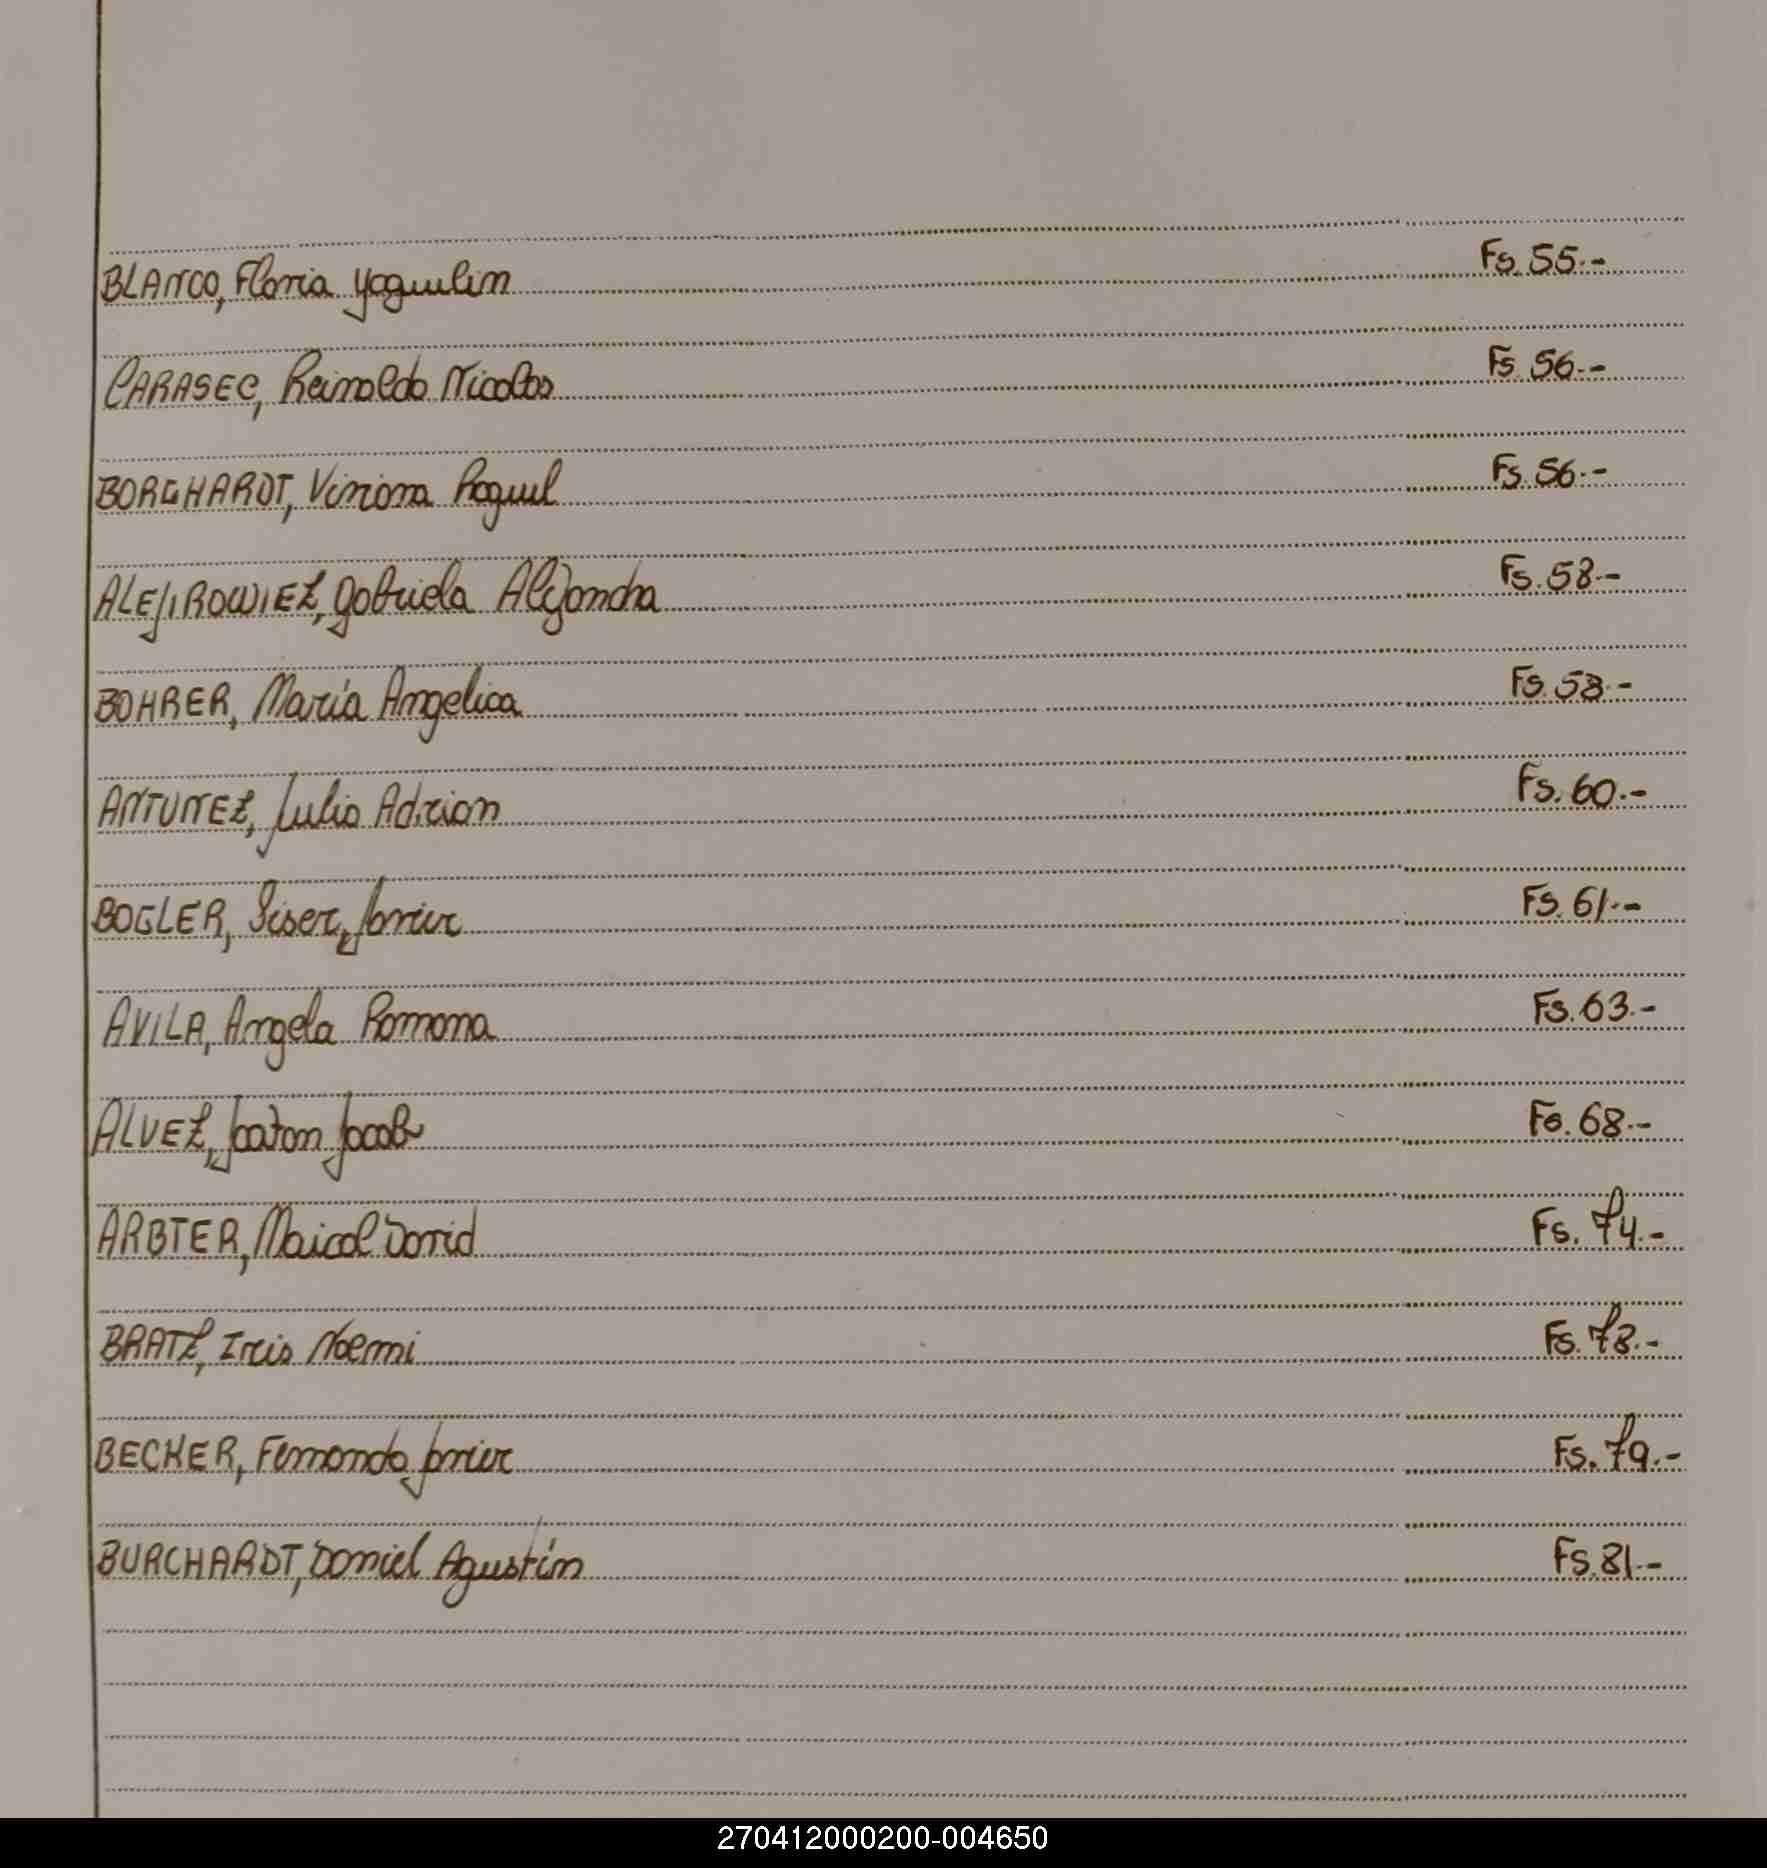 BLANCO, Floria Yaquelin Fs. 55.-
CARASEC, Reinaldo Nicolas Fs. 56.-
BORGHARDT, Viviana Raquel Fs. 56.-
ALEJIROWIEZ, Gabriela Alejandra Fs. 58.-
BOHRER, María Angelica Fs. 58.-
ANTUNEZ, Julio Adrian Fs. 60.-
BOGLER, Javier Fs. 61.-
AVILA, Angela Ramona Fs. 63.-
ALVEZ, Jacob Fs. 68.-
ARBTER, Maicol David Fs. 74.-
BRATZ, Iris Noemi Fs. 78.-
BECKER, Fernando Javier Fs. 79.-
BURCHARDT, Daniel Agustín Fs. 81.-
270412000200-004650